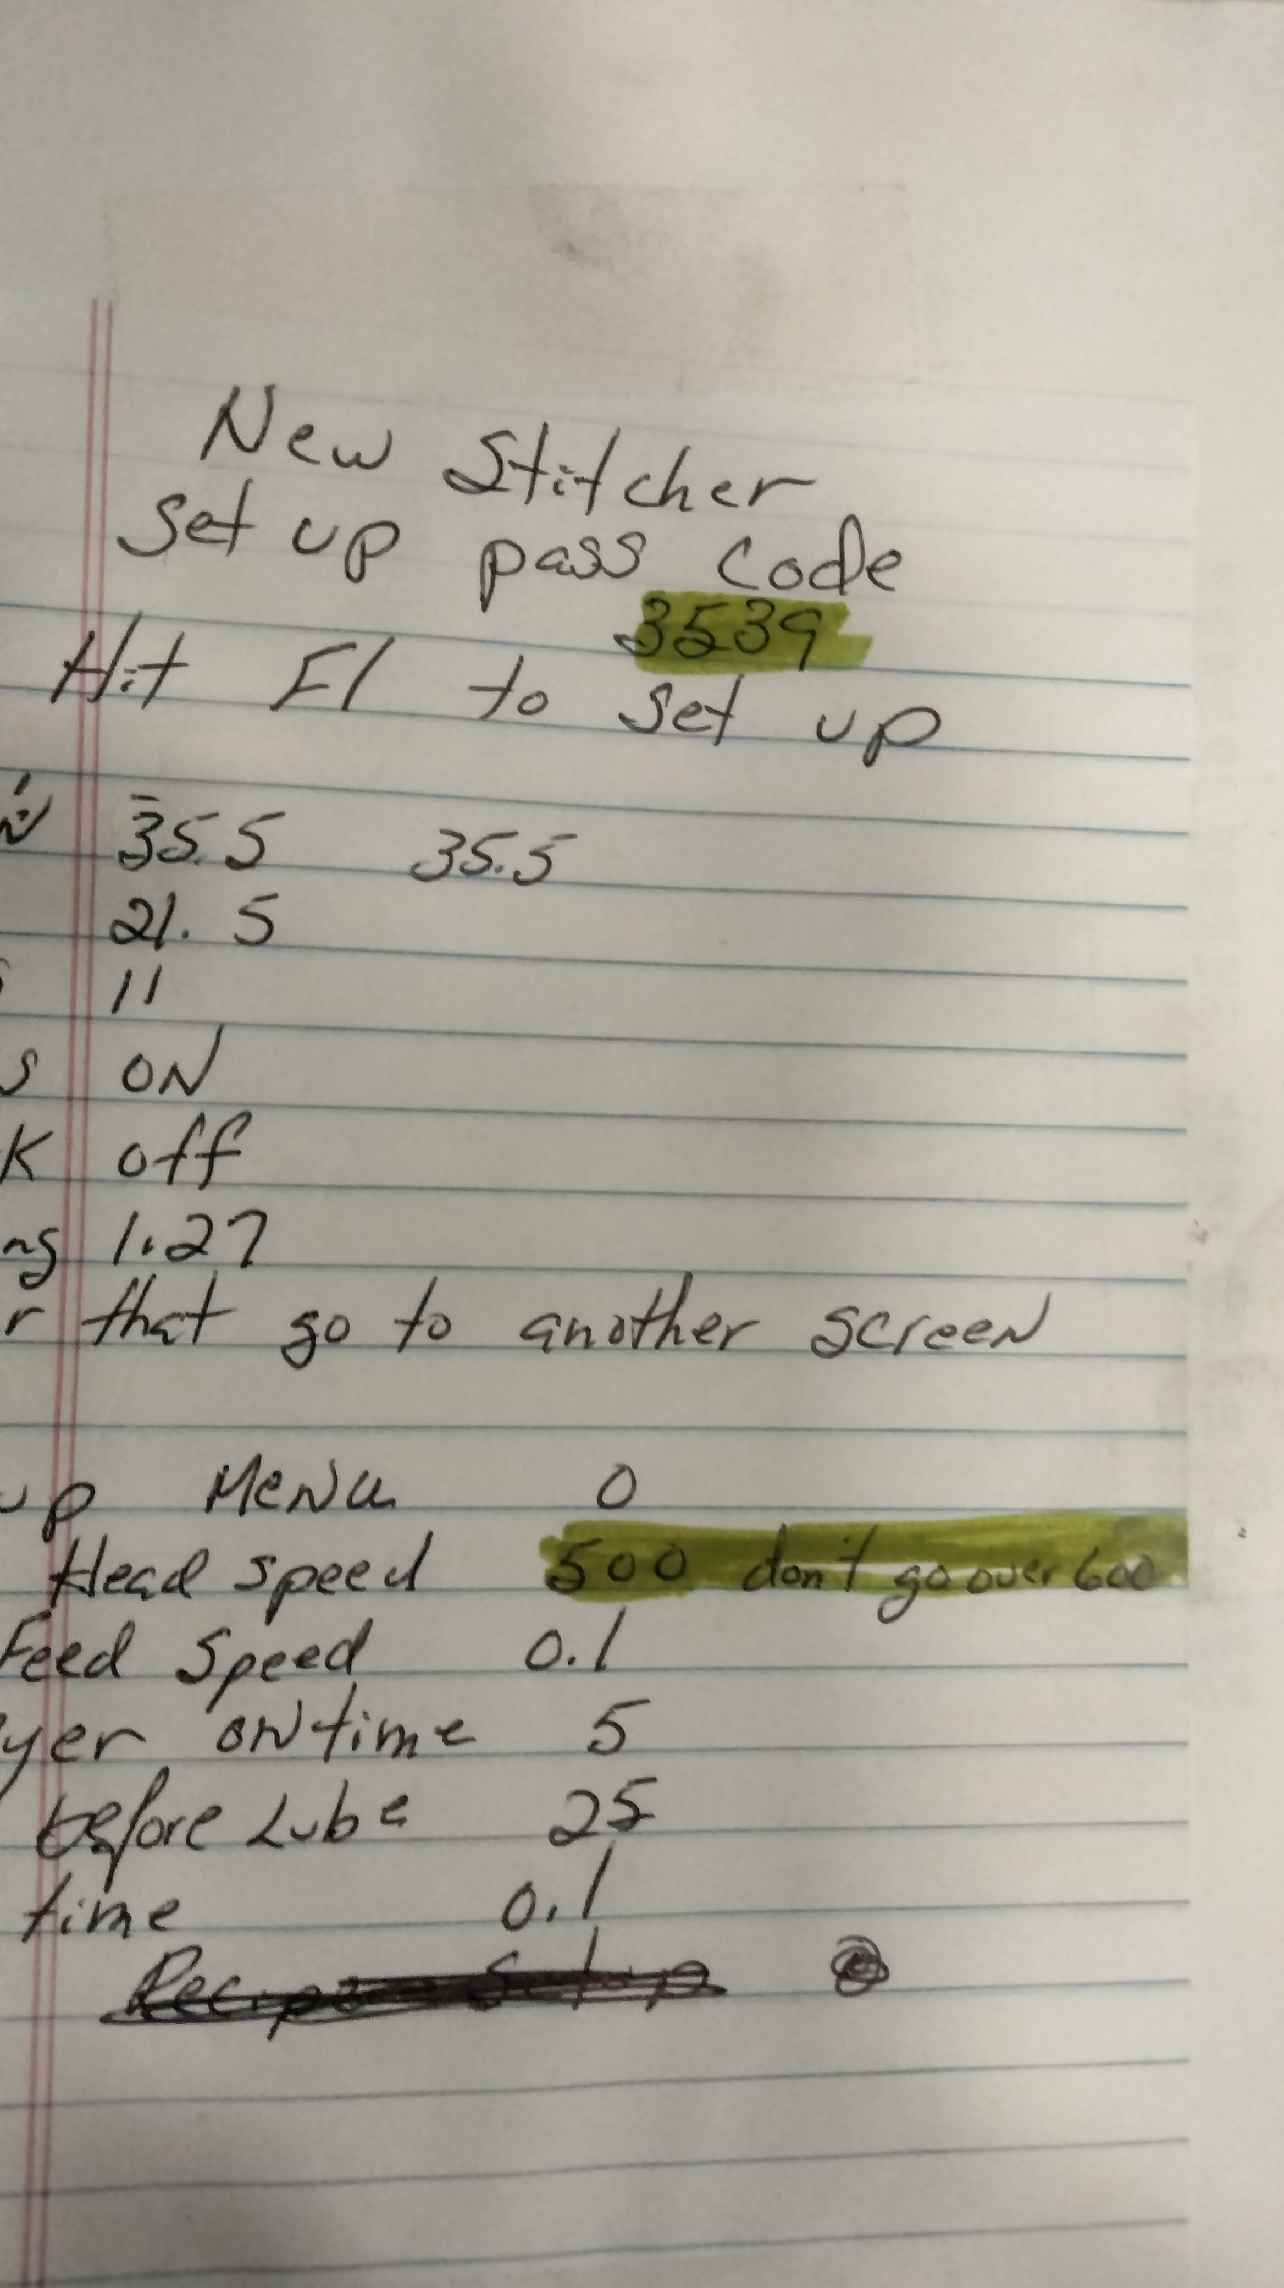 New Stitcher
Set up pass code
3539
Hit F1 to set up
35.5 35.5
21.5
11
s ON
K off
ng 1.27
r that go to another screen
up Menu 0
Head speed 500 don't go over 600
Feed Speed 0.1
yer on time 5
before Lube 25
time 0.1
Recipe Setup